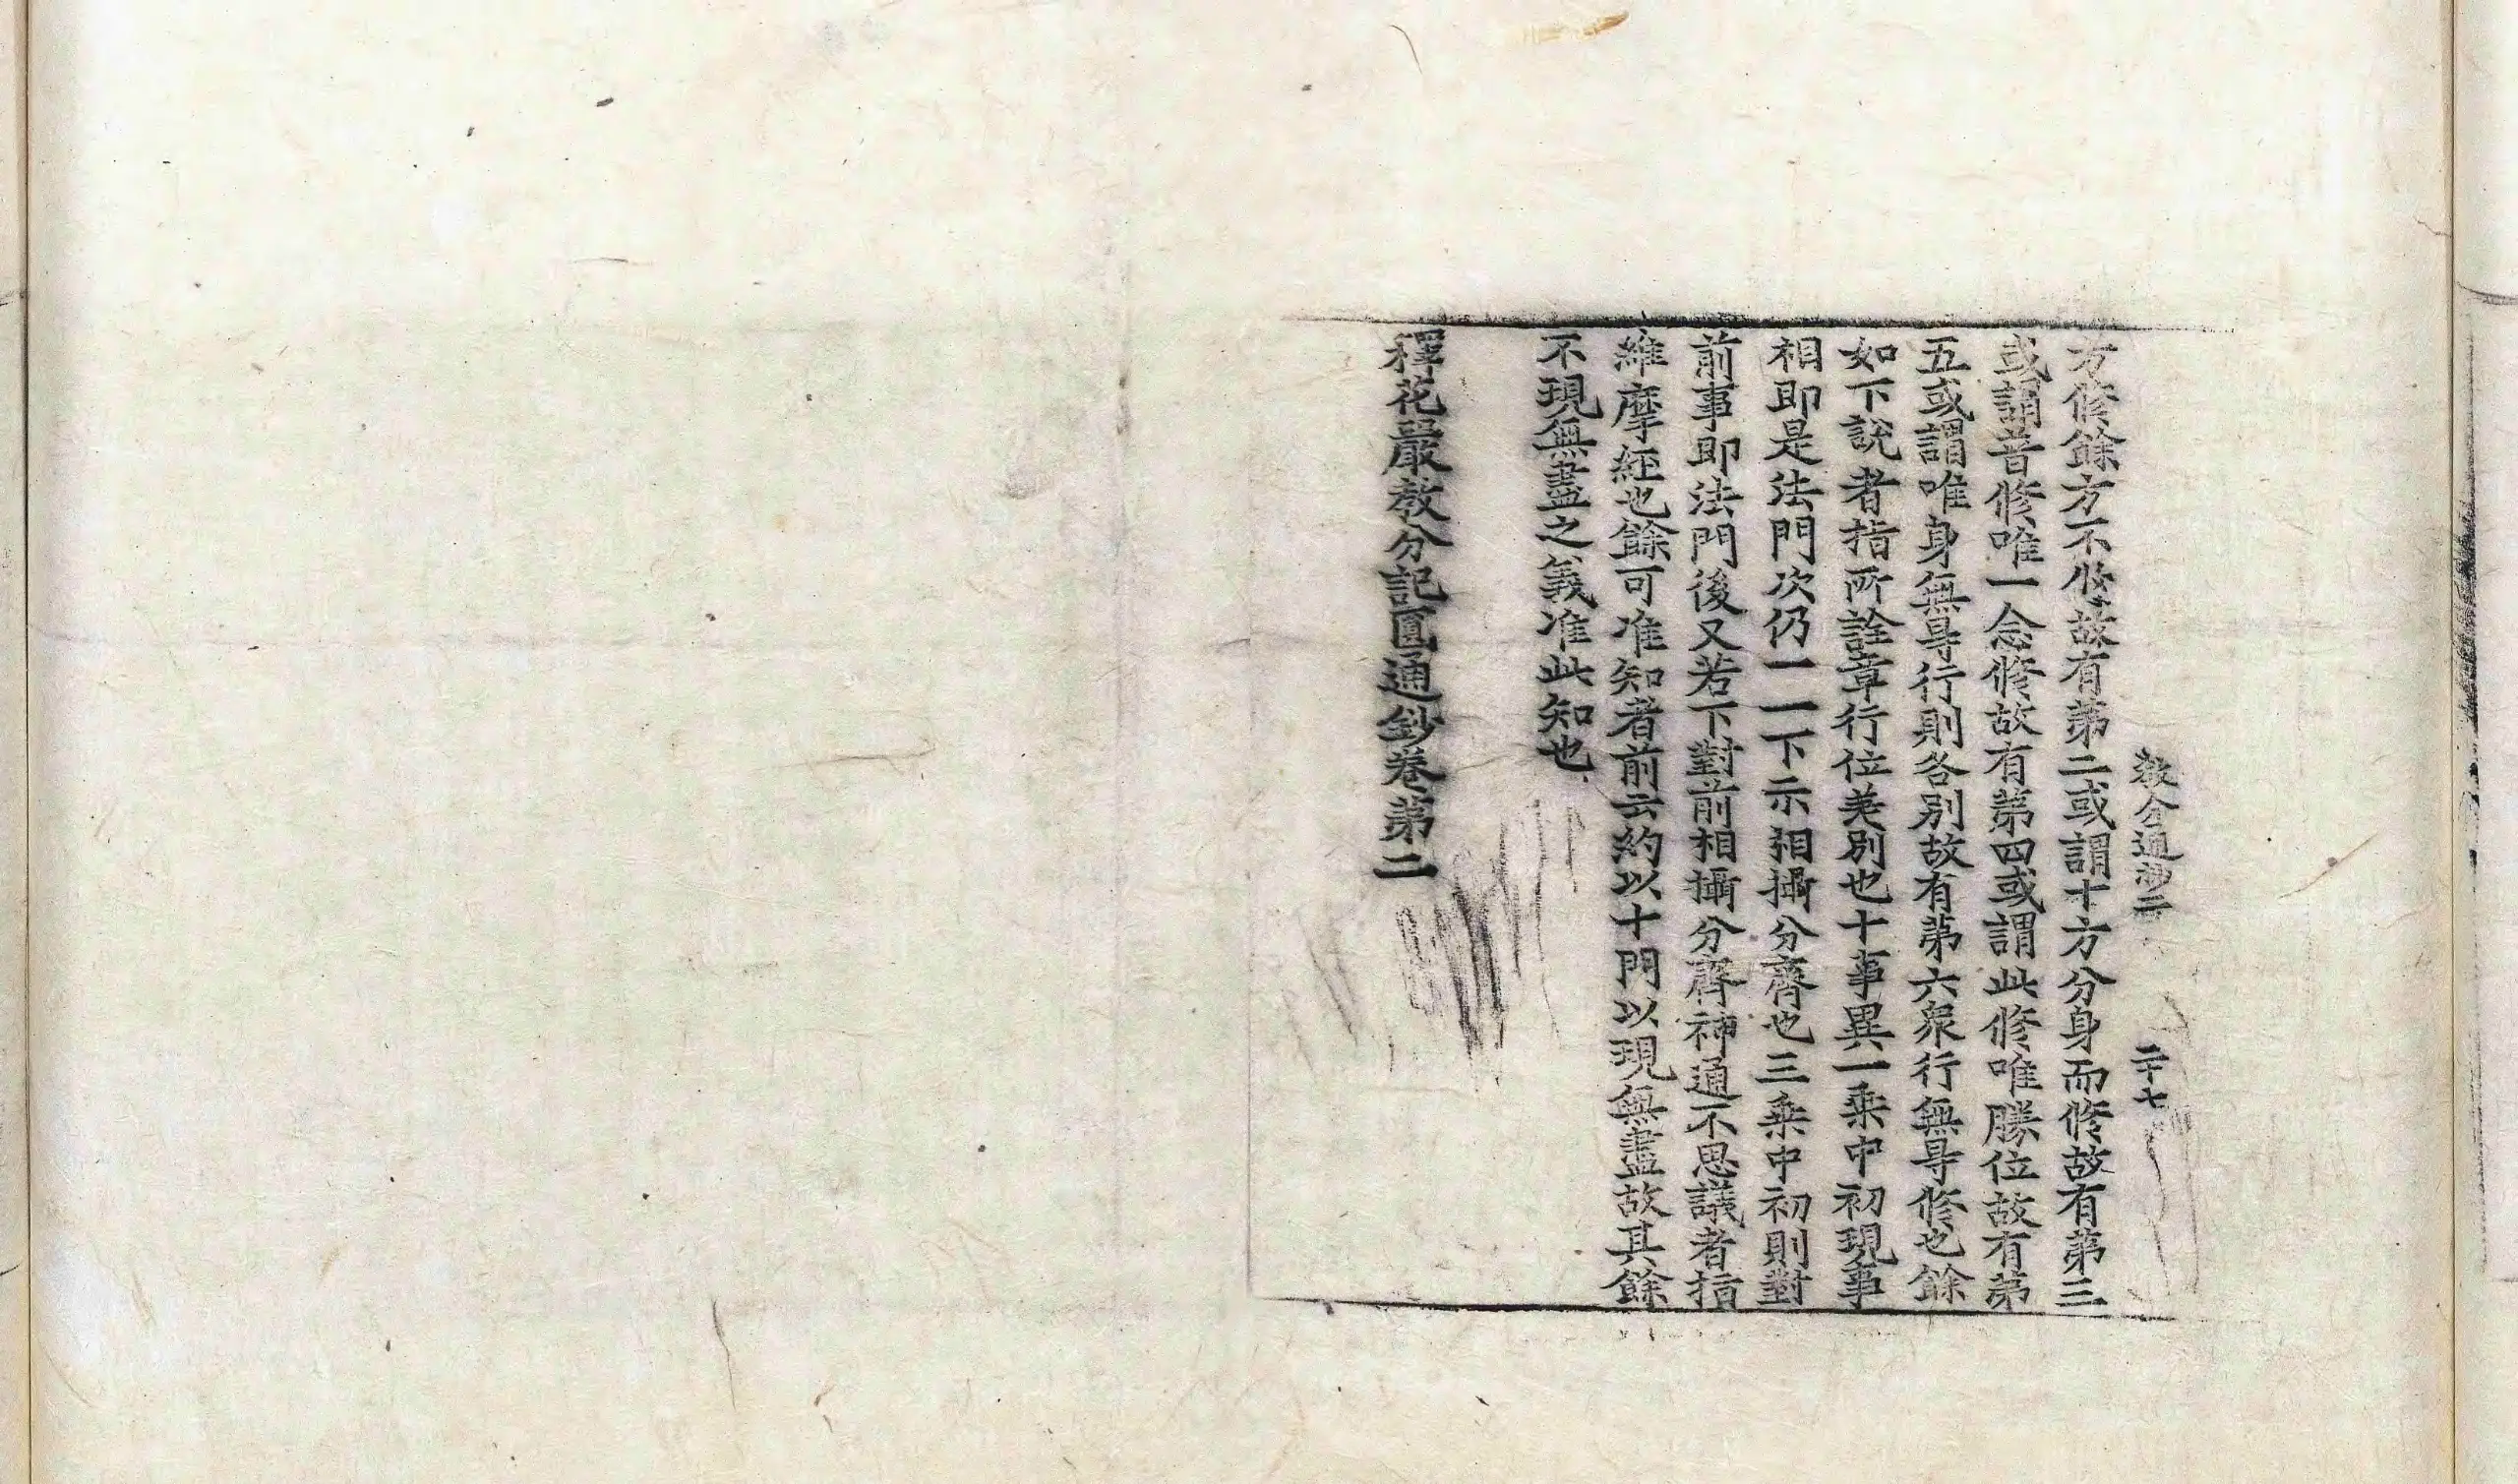 教分通抄二　二十七
方修餘方不修故有第二或謂十方分身而修故有第三
或謂昔修唯一念修故有第四或謂此修唯勝位故有第
五或謂唯身無㝵行則各別故有第六衆行無㝵修也餘
如下說者指所詮章行位差別也十事異一乘中初現事
相即是法門次仍一一下示相攝分齊也三乘中初則對
前事即法門後又若下對前相攝分齊神通不思議者指
維摩經也餘可准知者前云約以十門以現無盡故其餘
不現無盡之義准此知也
釋花嚴教分記圓通鈔卷第二